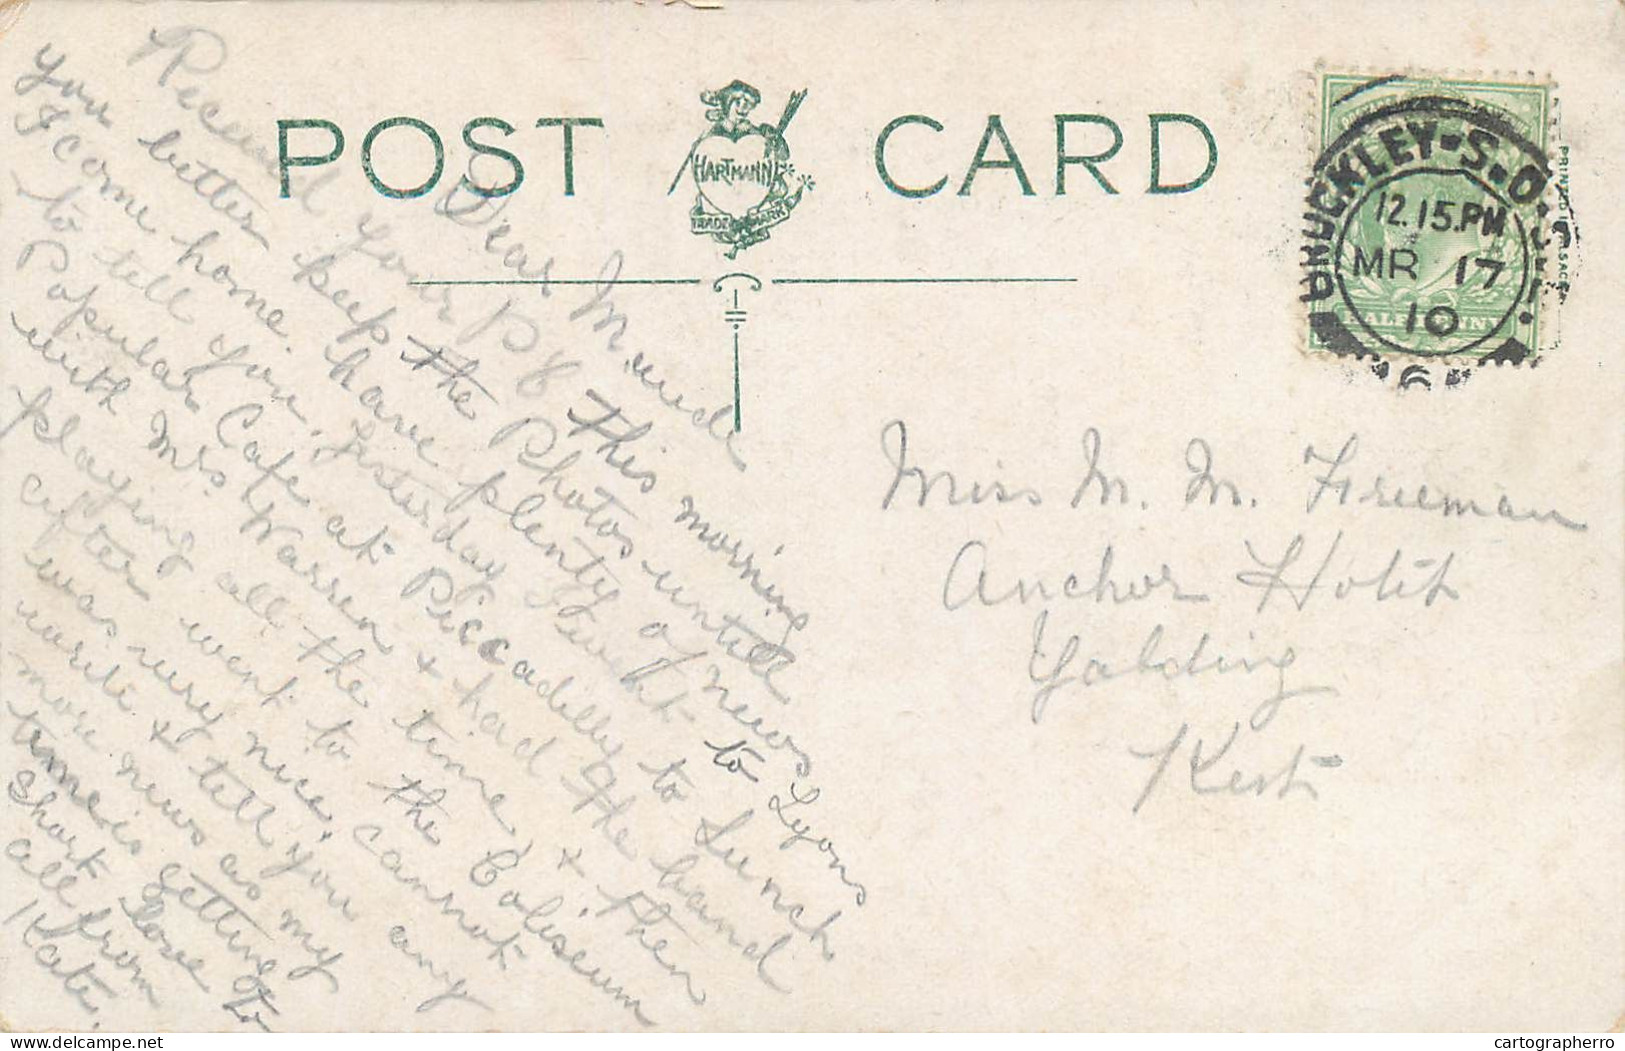 POST CARD
HARTMANN
TRADE MARK
KNUCKLEY-S.O.
12.15.PM
MR 17
10
HALFPENNY
Dear Maude
Received your P 8 this morning
you better keep the Photos untill
I come home. have plenty of news
to tell you. Yesterday I went to Lyons
Popular Cafe at Piccadilly to Lunch
with Mrs. Warren + had the band
playing all the time, + then
after went to the Coliseum
was very nice. cannot
write + tell you any
more news as my
time is getting
short love to
all from
Kate.
Miss M. M. Freeman
Anchor Hotel
Yalding
Kent
cartographerro